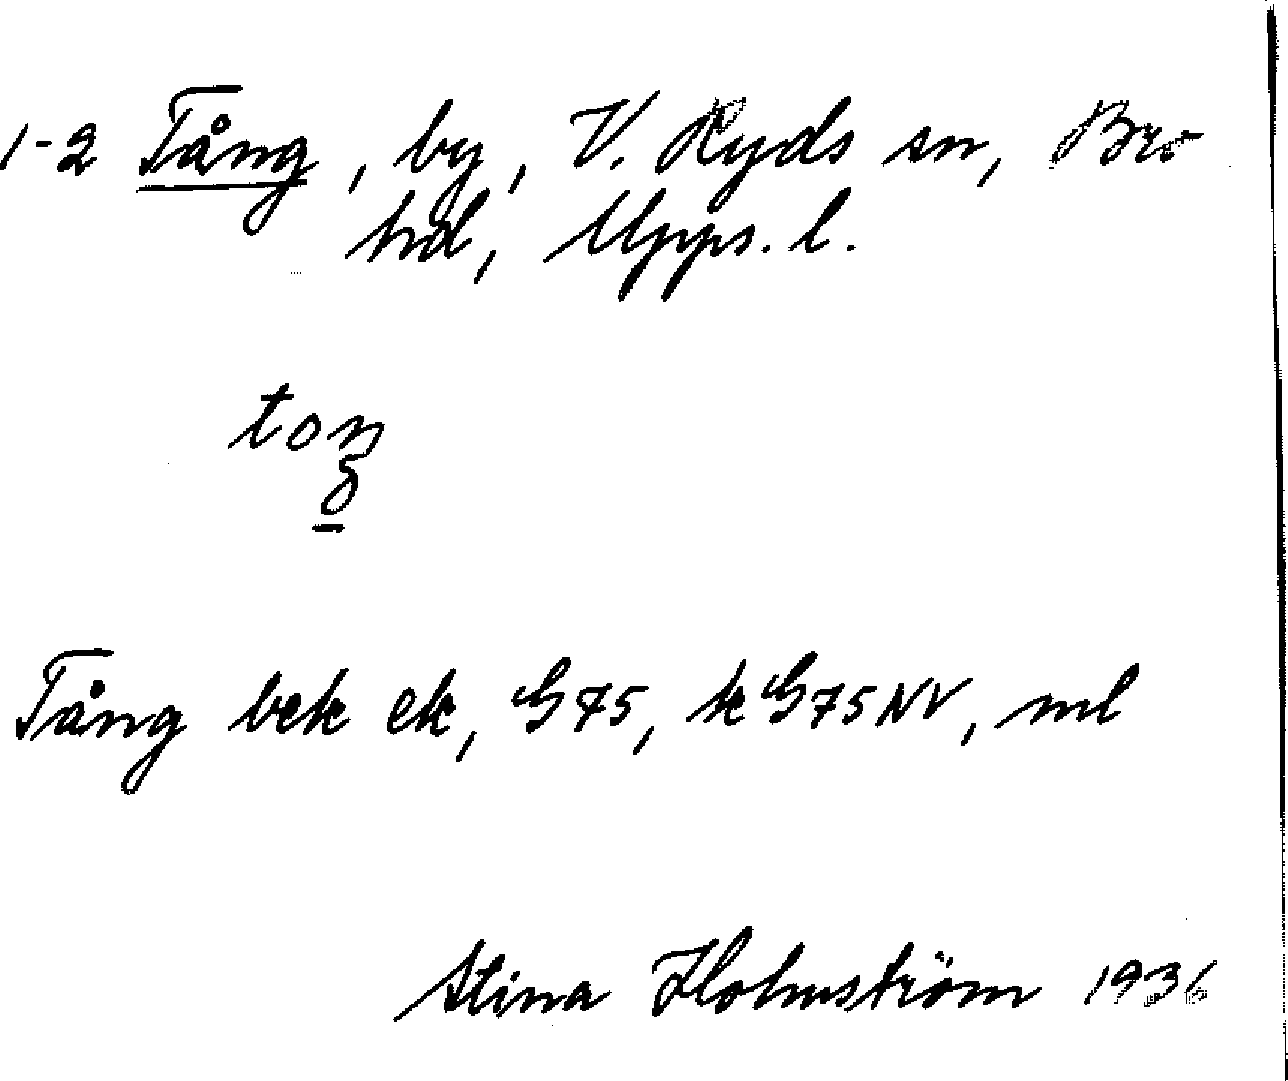 1-2 Tång, by, V. Ryds sn, Bro
hd, Upps. l.
toŋ
Tång bek ek, G75, k G75 NV, ml
Stina Holmström 1936